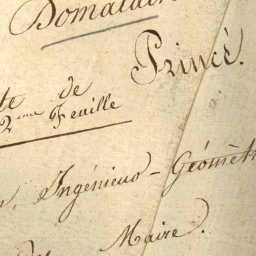 Domalain
Princé.
te de
2eme Feuille
Ingénieur-Géomèt
Maire.